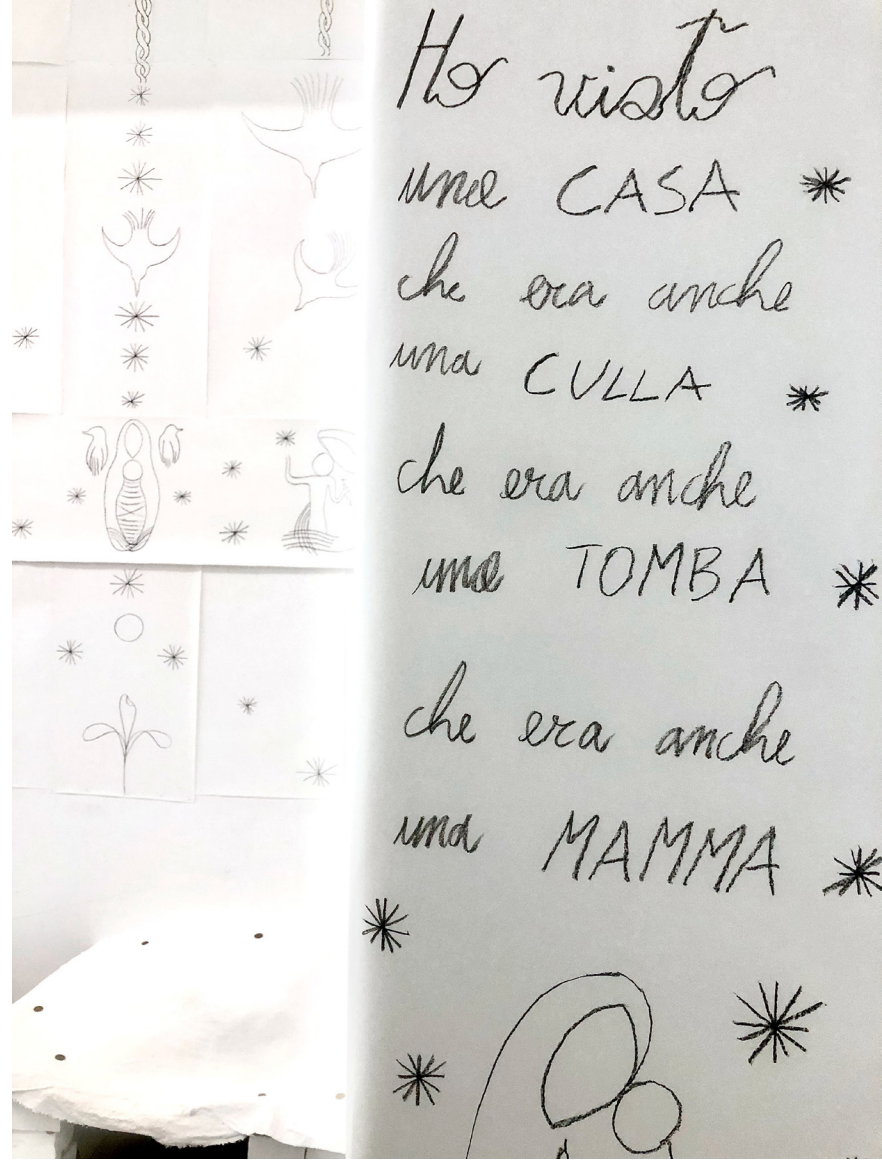 Ho visto
una CASA
che era anche
una CULLA
che era anche
una TOMBA
che era anche
una MAMMA